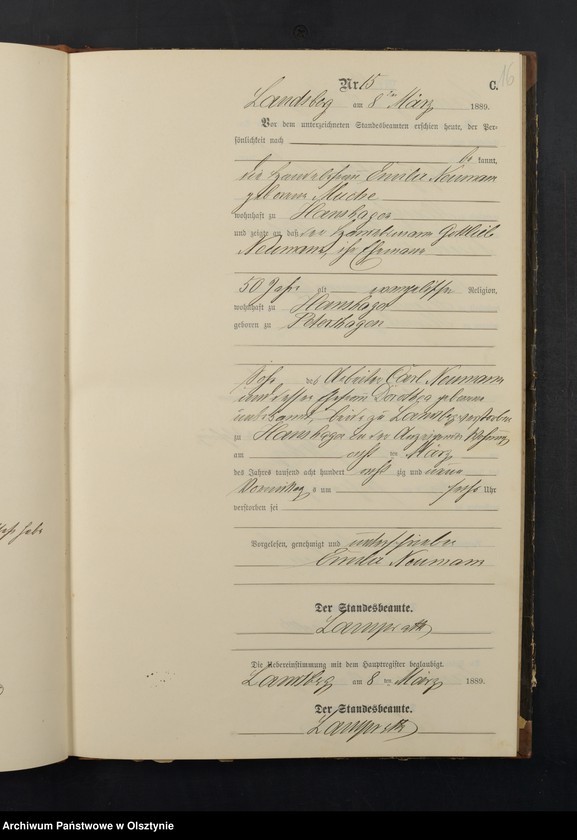 16
Nr. 15 C.
Landsberg am 8ten März 1889.
Vor dem unterzeichneten Standesbeamten erschien heute, der Per-
sönlichkeit nach
be kannt,
die Handelsfrau Emilie Neumann
geborene
wohnhaft zu Hanshagen
und zeigte an, daß der Handelsmann Gottlieb
Neumann, ihr Ehemann
50 Jahr alt evangelischer Religion,
wohnhaft zu Hanshagen
geboren zu Petershagen
Sohn des Arbeiter Carl Neumann
und dessen Ehefrau Dorothea geborene
unbekannt, beide zu Landsberg verstorben
zu Hanshagen in der Wohnung
am acht ten März
des Jahres tausend acht hundert acht zig und neun
Vormittags um sechs Uhr
verstorben sei
Vorgelesen, genehmigt und unterschrieben
Emilie Neumann
Der Standesbeamte.
Lamprecht
Die Uebereinstimmung mit dem Hauptregister beglaubigt.
Landsberg am 8 ten März 1889.
Der Standesbeamte.
Lamprecht
Archiwum Państwowe w Olsztynie